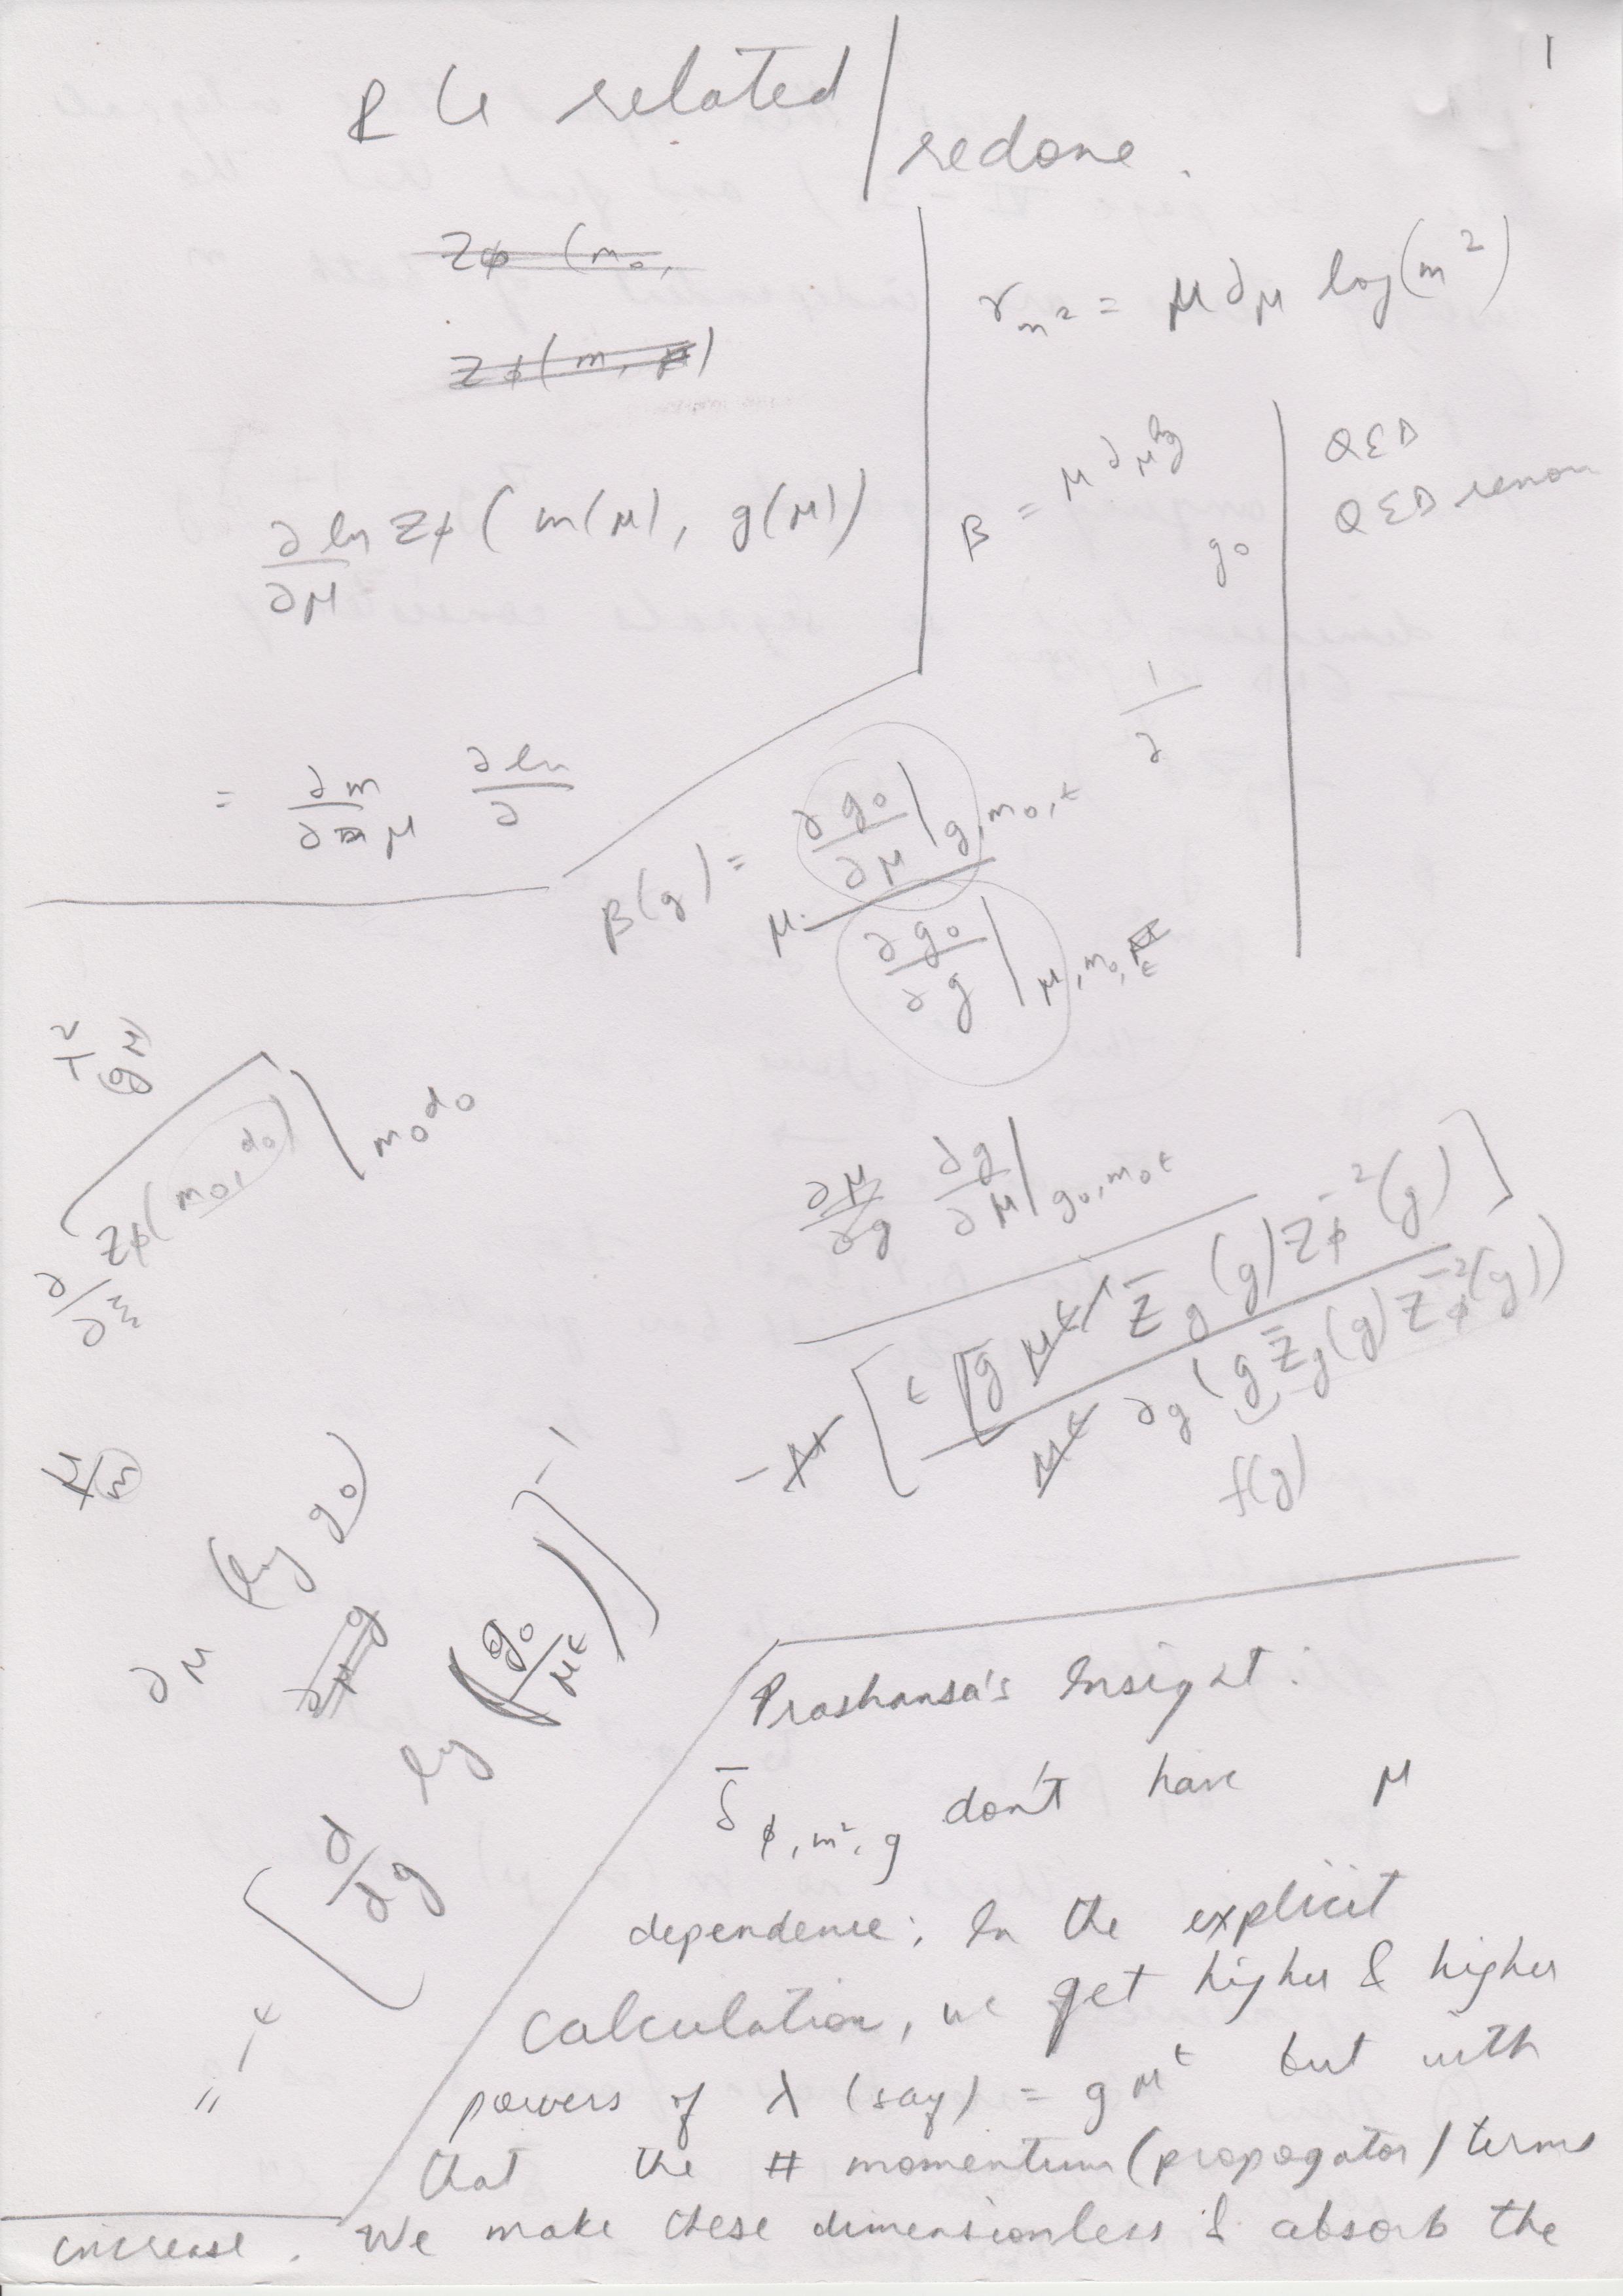 1
RG related / redone.
Zϕ (m₀,
Zϕ(m, μ)
∂ ln Zϕ ( m(μ), g(μ) )
∂μ
= ∂m ∂ ln
∂m μ ∂
γ_m² = μ ∂_μ log(m²)
β = μ ∂_μ g
g₀
QED
QED renorm
1
∂
β(g) = μ · ∂g₀/∂μ |g, m₀, ϵ
∂g₀/∂g |μ, m₀, ϵ
∂/∂m Zϕ(m₀, α₀) | m₀ α₀
∂μ/∂g ∂g/∂μ | g₀, m₀ ϵ
- μ [ ϵ [g μ^ϵ-1 Z̄_g (g) Z̄_ϕ^-2 (g) ]
μ^ϵ ∂g (g Z̄_g(g) Z̄_ϕ^-2(g))
f(g)
μ/m
∂μ (log g₀)
∂μ g
= -ϵ [ ∂/∂g log (g₀/μ^ϵ) ]^-1
Prashansa's Insight:
δ̄ ϕ, m², g don't have μ
dependence; In the explicit
calculation, we get higher & higher
powers of λ (say) = g μ^ϵ but with
that the # momentum (propogator) terms
increase. We make these dimensionless & absorb the